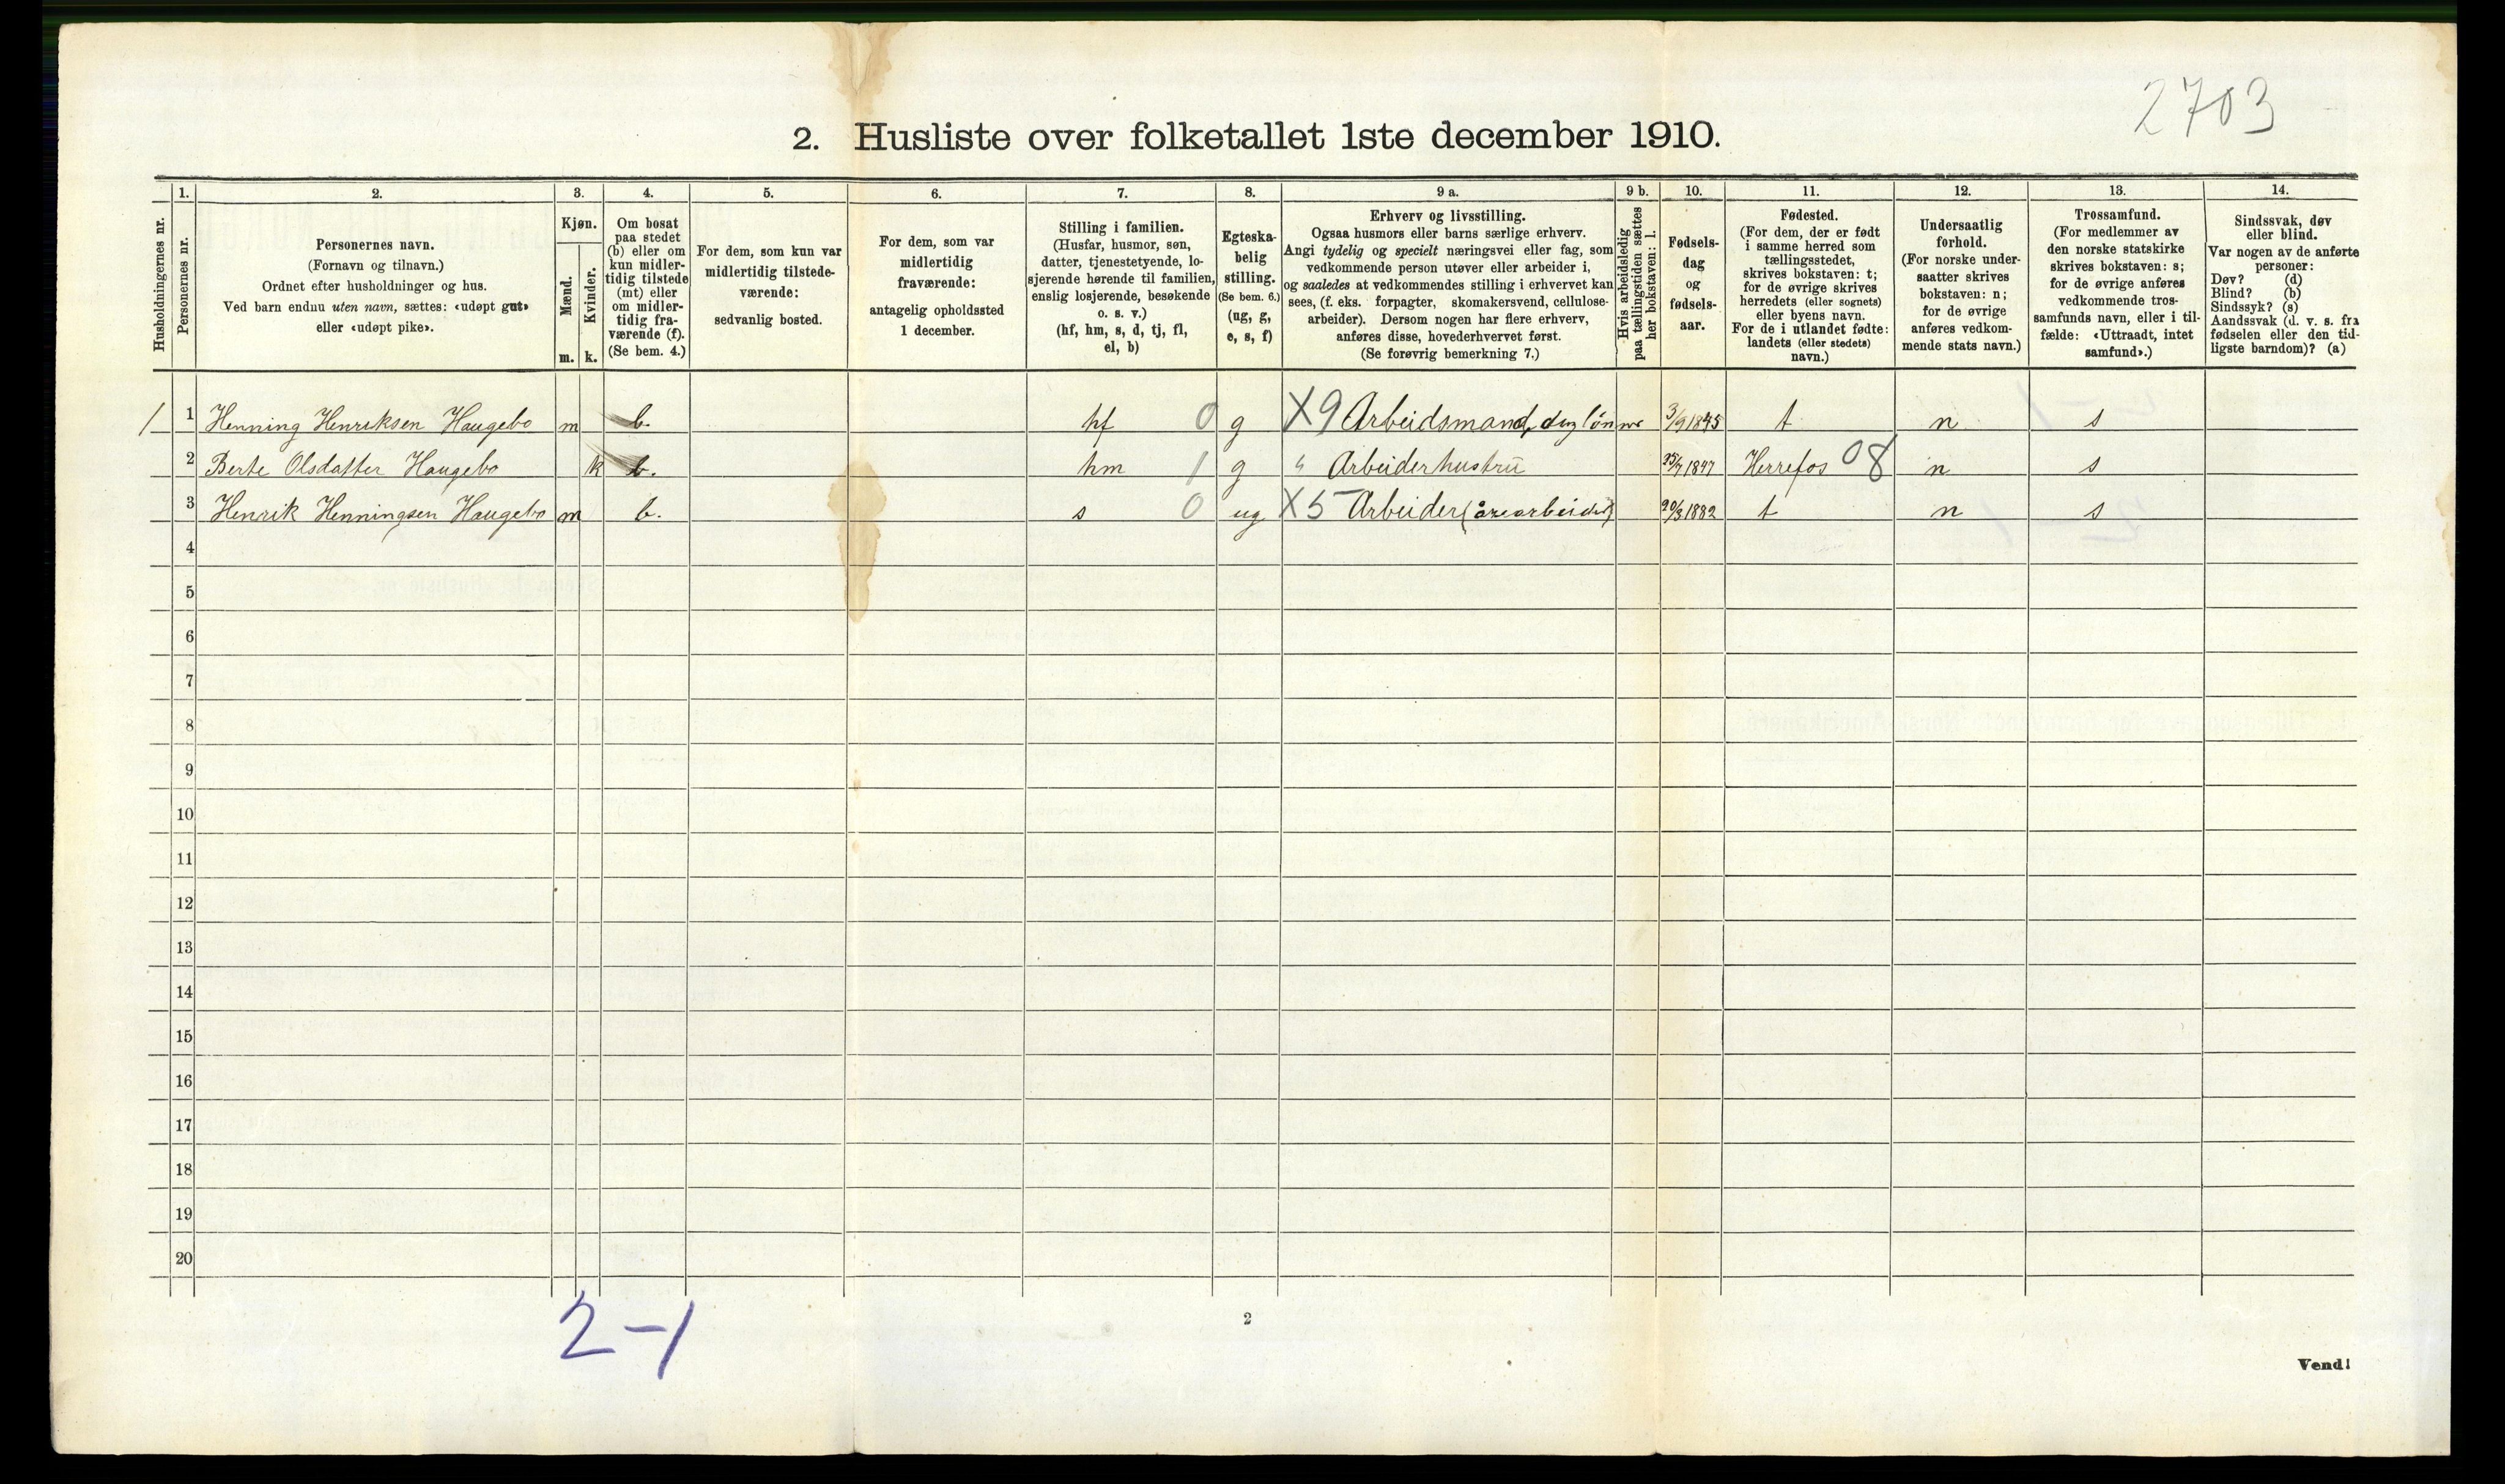 2703
2. Husliste over folketallet 1ste december 1910.
Husholdningernes nr.
1.
Personernes nr.
2.
Personernes navn.
(Fornavn og tilnavn.)
Ordnet efter husholdninger og hus.
Ved barn endnu uten navn, sættes: «udøpt gut»
eller «udøpt pike».
3.
Kjøn.
Mænd.
m.
Kvinder.
k.
4.
Om bosat
paa stedet
(b) eller om
kun midler-
tidig tilstede
(mt) eller
om midler-
tidig fra-
værende (f).
(Se bem. 4.)
5.
For dem, som kun var
midlertidig tilstede-
værende:
sedvanlig bosted.
6.
For dem, som var
midlertidig
fraværende:
antagelig opholdssted
1 december.
7.
Stilling i familien.
(Husfar, husmor, søn,
datter, tjenestetyende, lo-
sjerende hørende til familien,
enslig losjerende, besøkende
o. s. v.)
(hf, hm, s, d, tj, fl,
el, b)
8.
Egteska-
belig
stilling.
(Se bem. 6.)
(ug, g,
e, s, f)
9 a.
Erhverv og livsstilling.
Ogsaa husmors eller barns særlige erhverv.
Angi tydelig og specielt næringsvei eller fag, som
vedkommende person utøver eller arbeider i,
og saaledes at vedkommendes stilling i erhvervet kan
sees, (f. eks. forpagter, skomakersvend, cellulose-
arbeider). Dersom nogen har flere erhverv,
anføres disse, hovederhvervet først.
(Se forøvrig bemerkning 7.)
9 b.
Hvis arbeidsledig
paa tællingstiden sættes
her bokstaven: l.
10.
Fødsels-
dag
og
fødsels-
aar.
11.
Fødested.
(For dem, der er født
i samme herred som
tællingsstedet,
skrives bokstaven: t;
for de øvrige skrives
herredets (eller sognets)
eller byens navn.
For de i utlandet fødte:
landets (eller stedets)
navn.)
12.
Undersaatlig
forhold.
(For norske under-
saatter skrives
bokstaven: n;
for de øvrige
anføres vedkom-
mende stats navn.)
13.
Trossamfund.
(For medlemmer av
den norske statskirke
skrives bokstaven: s;
for de øvrige anføres
vedkommende tros-
samfunds navn, eller i til-
fælde: «Uttraadt, intet
samfund».)
14.
Sindssvak, døv
eller blind.
Var nogen av de anførte
personer:
Døv? (d)
Blind? (b)
Sindssyk? (s)
Aandssvak (d. v. s. fra
fødselen eller den tid-
ligste barndom)? (a)
1 1 Henning Henriksen Haugebo m b. hf 0 g X9 Arbeidsmand, dagløn 3/9 1845 t n s
2 Berte Olsdatter Haugebo k b. hm 1 g " Arbeiderhustru 1847 Herrefos 08 n s
3 Henrik Henningsen Haugebo m b. s 0 ug X5 Arbeider 20/3 1882 t n s
4
5
6
7
8
9
10
11
12
13
14
15
16
17
18
19
20
2-1
2
Vend!